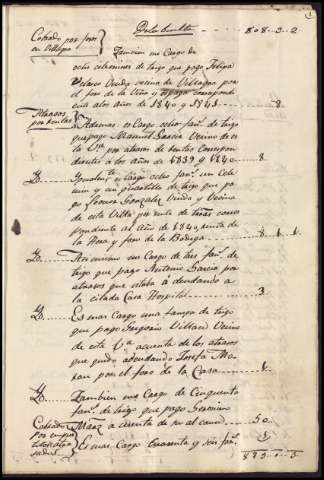 Cobrado por foro
en Villagra
De la buelta 808..3..2
Tambien me Cargo de
ocho celemines de trigo que pago Felipa
Velasco Viuda vecina de Villagra por
el foro de la Viña y es pago correspondi
ente a los años de 1840 y 1841 8
Atrasos
por rentas
Ademas es Cargo ocho fan.s de trigo
que pago Manuel Garcia Vecino de es
ta V.a por atrasos de rentas Correspon
dientes a los años de 1839 y 1840 8
Igualm.te es Cargo ocho fan.s un Cele
min y un quartillo de trigo que pa
go Gonzalez Viuda y Vecina
de esta Villa por renta de tierras corres
pondiente al año de 1840, renta de
la Hera y foro de la Bodega 8..1..1
Asimismo es Cargo de tres fan.s de
trigo que pago Antonio Garcia por
atrasos que estaba adeudando a
la citada Casa Hospital 3
Es mas Cargo una fanega de trigo
que pago Gregorio Vecino
de esta V.a a cuenta de los atrasos
que quedo adeudando Josefa Mo
ran por el foro de la Casa 1
Tambien me Cargo de Cinquenta
fan.s de trigo que pago Geronimo
a cuenta de su alcance 50
Cobrado
por
Es mas Cargo Cuarenta y seis fan.s